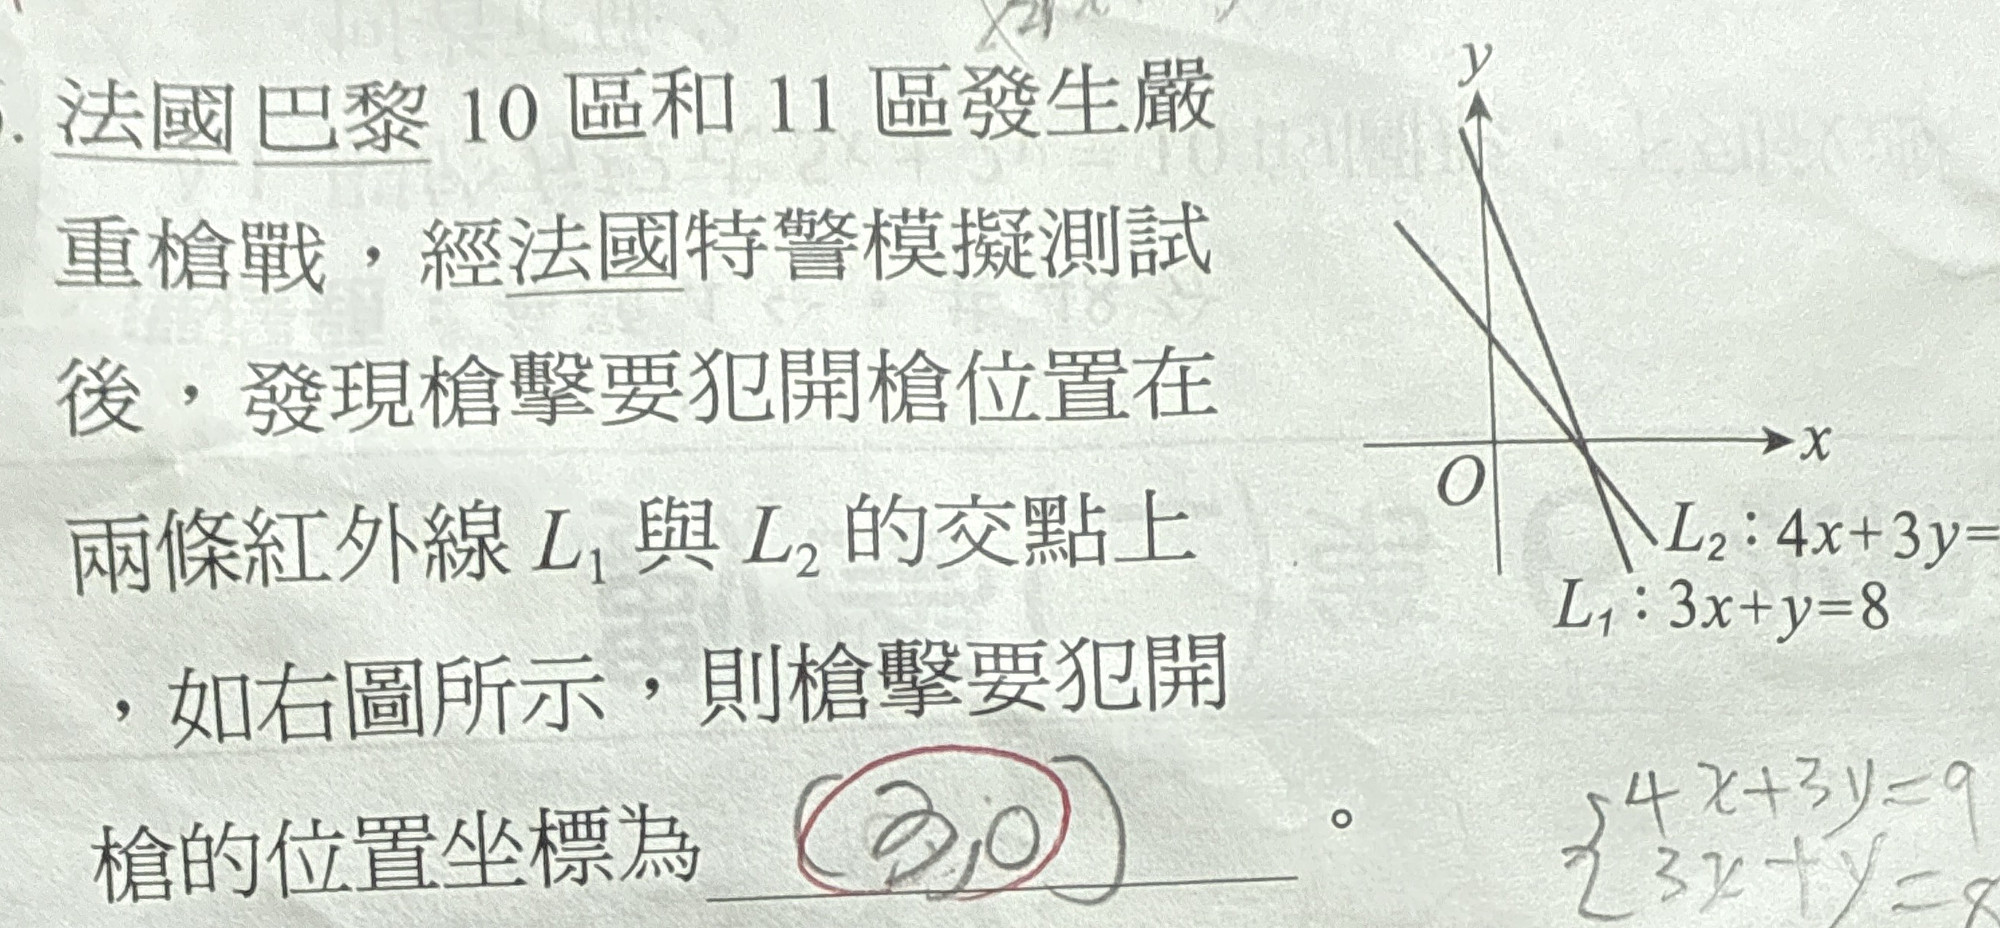 法國巴黎 10 區和 11 區發生嚴
重槍戰，經法國特警模擬測試
後，發現槍擊要犯開槍位置在
兩條紅外線 L₁ 與 L₂ 的交點上
，如右圖所示，則槍擊要犯開
槍的位置坐標為 (3,0) 。
y
x
O
L₂：4x+3y=
L₁：3x+y=8
4x+3y=9
3x+y=8